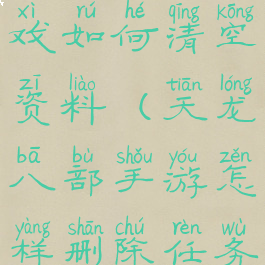 xì rú hé qīng kōng
戏如何清空
zī liào tiān lóng
资料(天龙
bā bù shǒu yóu zěn
八部手游怎
yàng shān chú rèn wù
样删除任务